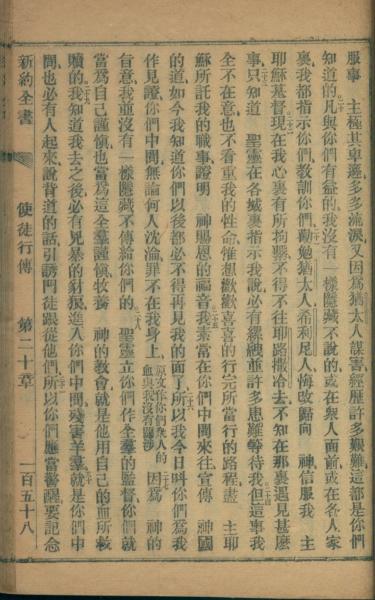 服事　主極其卑遜多多流淚又因爲猶太人謀害經歷許多艱難這都是你們
知道的凡與你們有益的我沒有一樣隱藏不說的或在衆人面前或在各人家
裏我都指示你們教訓你們勸勉猶太人希利尼人悔改歸向　神信服我　主
耶穌基督現在我心裏有所拘繫不得不往耶路撒冷去不知在那裏遇見甚麼
事只知道　聖靈在各城裏指示我說必有縲絏並許多患難等待我但這事我
全不在意也不看重我的性命惟想歡歡喜喜的行完所當行的路程盡　主耶
穌所託我的職事證明　神賜恩的福音我素常在你們中間來往宣傳　神國
的道如今我知道你們以後都必不得再見我的面了所以我今日呌你們爲我
作見證你們中間無論何人沈淪罪不在我身上原文作你們衆人的血與我沒有關涉因爲　神的
旨意我並沒有一樣隱藏不傳給你們的　聖靈立你們作全羣的監督你們就
當爲自己謹愼也當爲這全羣謹愼牧養　神的敎會就是他用自己的血所救
贖的我知道我去之後必有兇暴的豺狼進入你們中間殘害羊羣就是你們中
間也必有人起來說背道的話引誘門徒跟從他們所以你們應當警醒要記念
新約全書　使徒行傳　第二十章　一百五十八